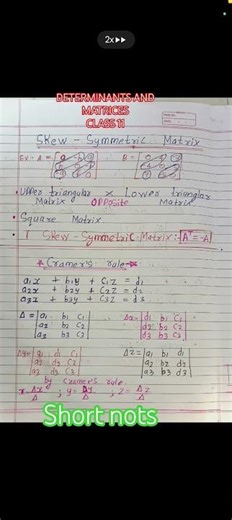 2x
DETERMINANTS AND
MATRICES
CLASS 11
Skew - Symmetric Matrix
Ex:- A =
B =
• Upper triangular x Lower triangular
Matrix OPPOSITE Matrix
• Square Matrix
• T Skew - Symmetric Matrix:- Aᵀ = -A
Cramer's rule
a₁x + b₁y + c₁z = d₁
a₂x + b₂y + c₂z = d₂
a₃x + b₃y + c₃z = d₃
Δ = | a₁ b₁ c₁ | Δx = | d₁ b₁ c₁ |
| a₂ b₂ c₂ | | d₂ b₂ c₂ |
| a₃ b₃ c₃ | | d₃ b₃ c₃ |
Δy = | a₁ d₁ c₁ | Δz = | a₁ b₁ d₁ |
| a₂ d₂ c₂ | | a₂ b₂ d₂ |
| a₃ d₃ c₃ | | a₃ b₃ d₃ |
by Cramer's rule
x = Δx/Δ , y = Δy/Δ , z = Δz/Δ
Short nots